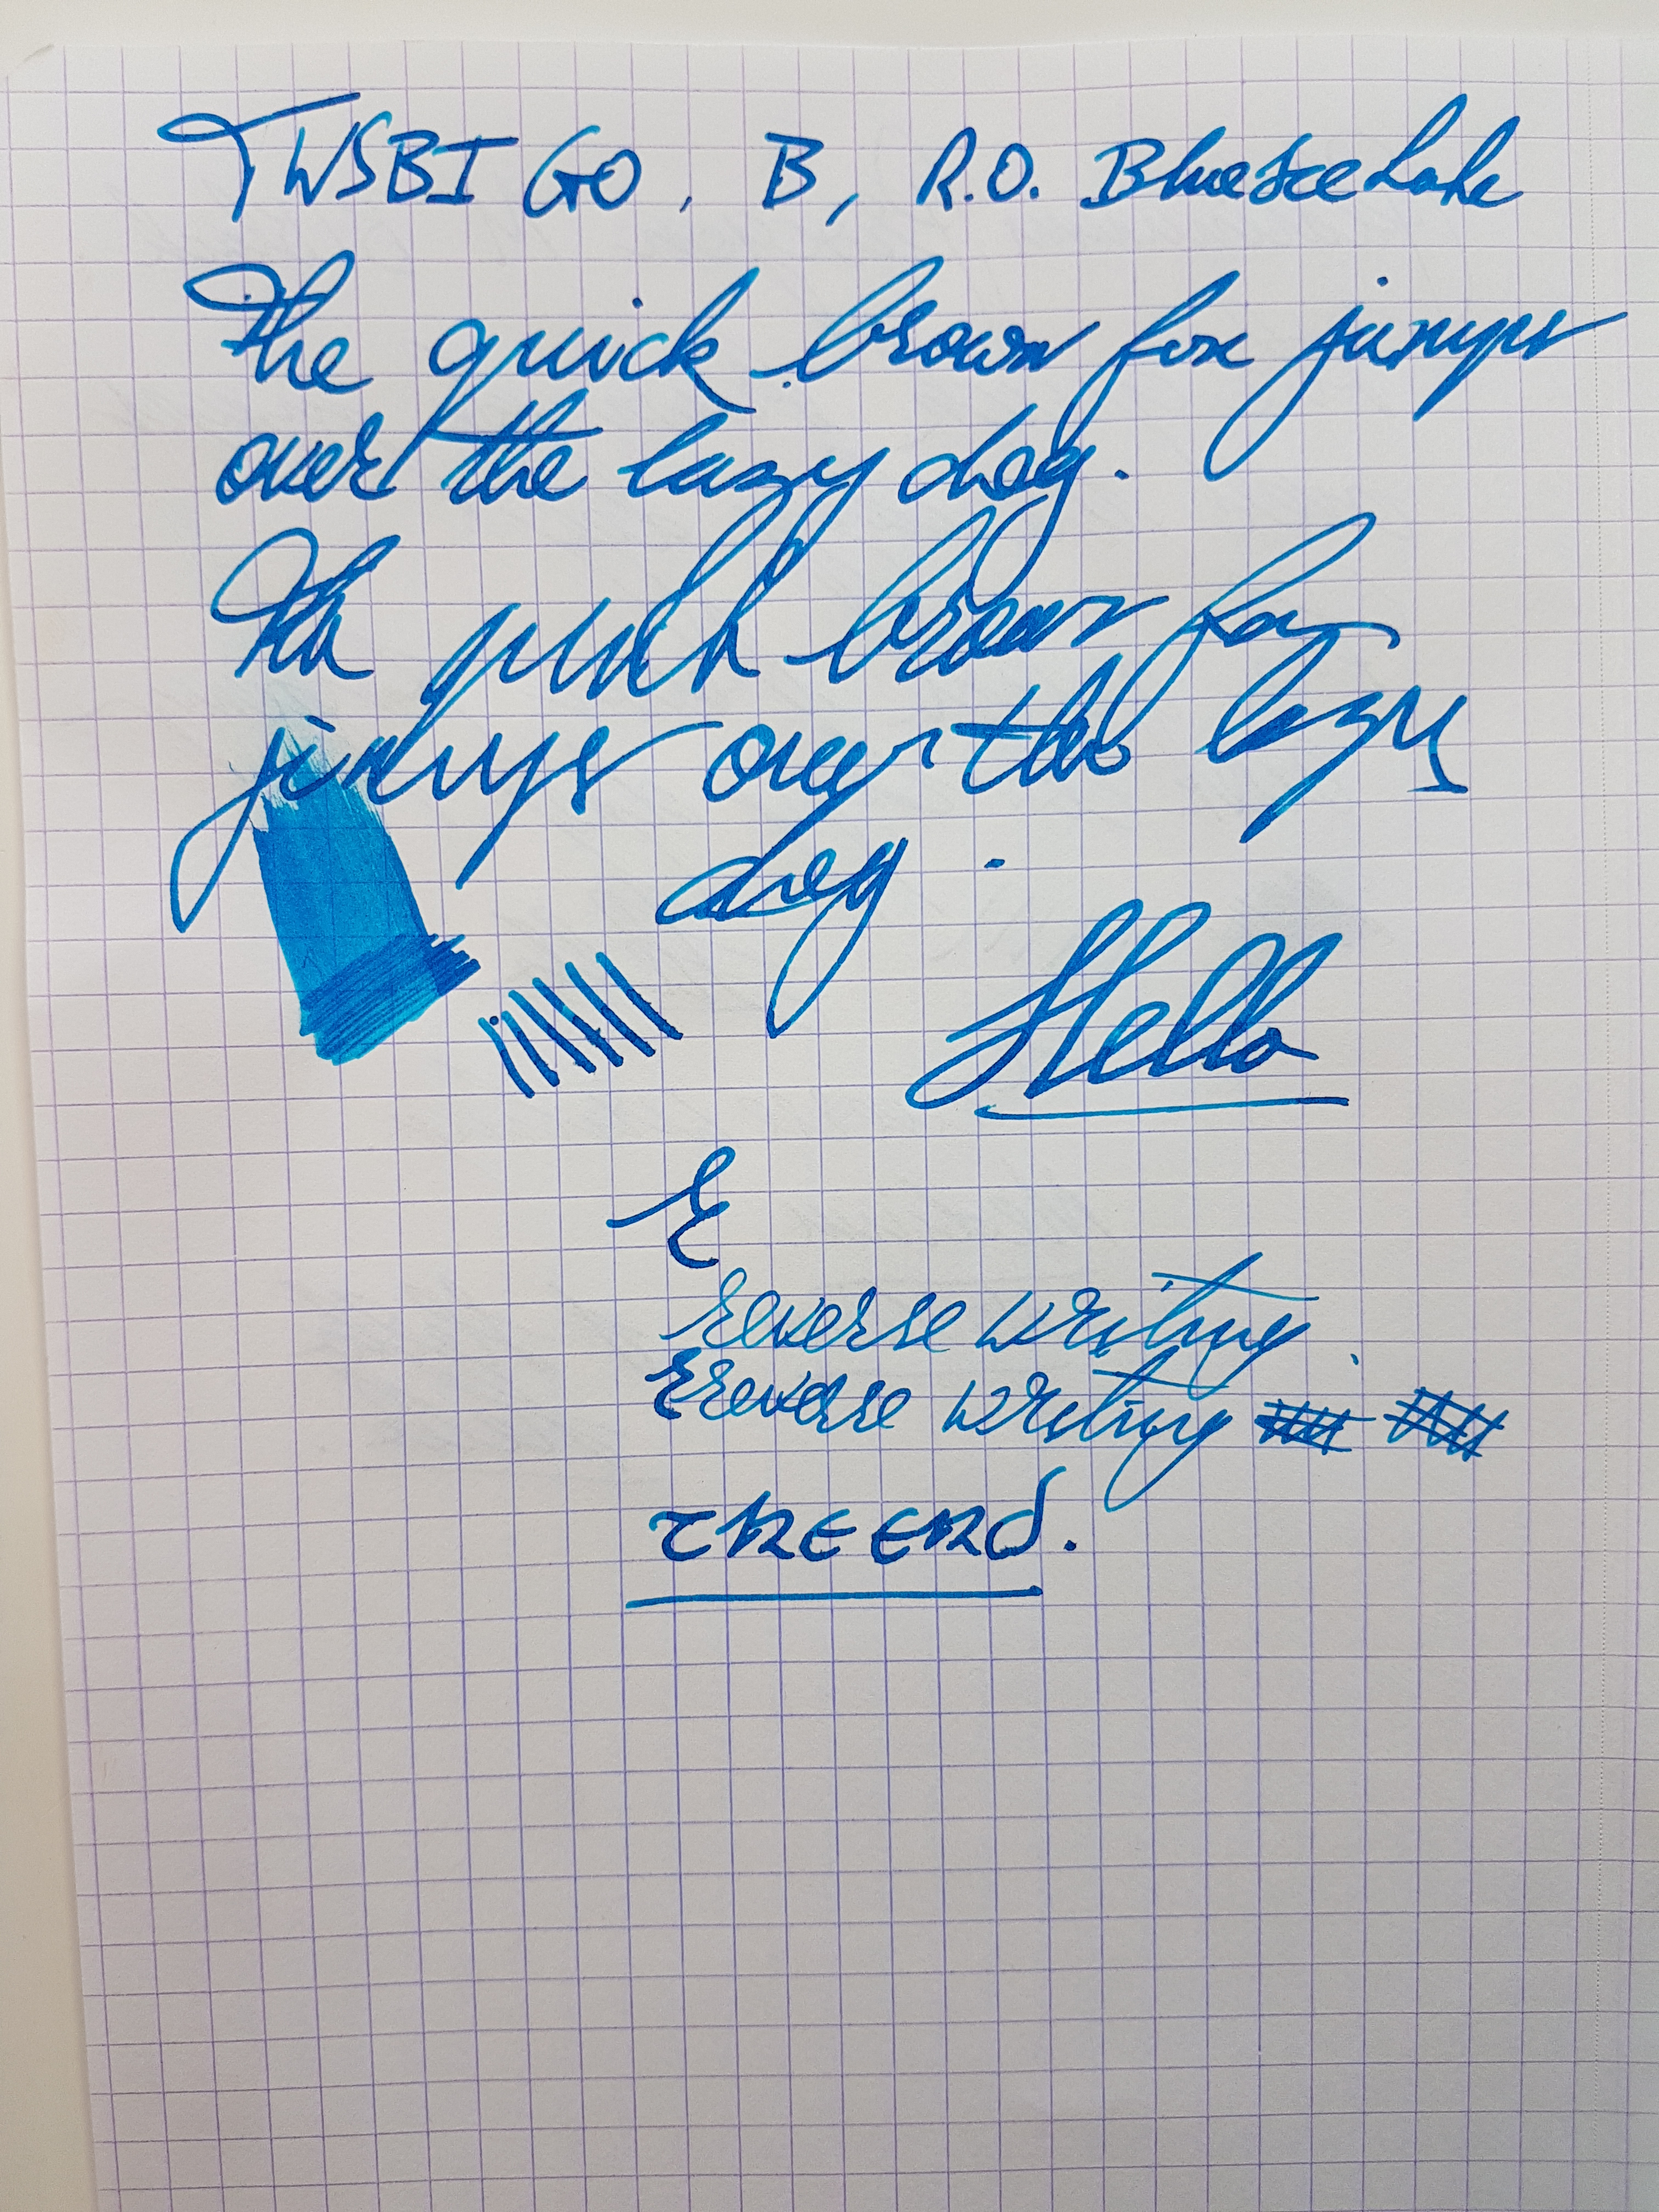 TWSBI GO, B, R.O. Blue Ice Lake
The quick brown fox jumps
over the lazy dog.
The quick brown fox
jumps over the lazy
dog.
Hello
E
reverse writing.
reverse writing
THE END.